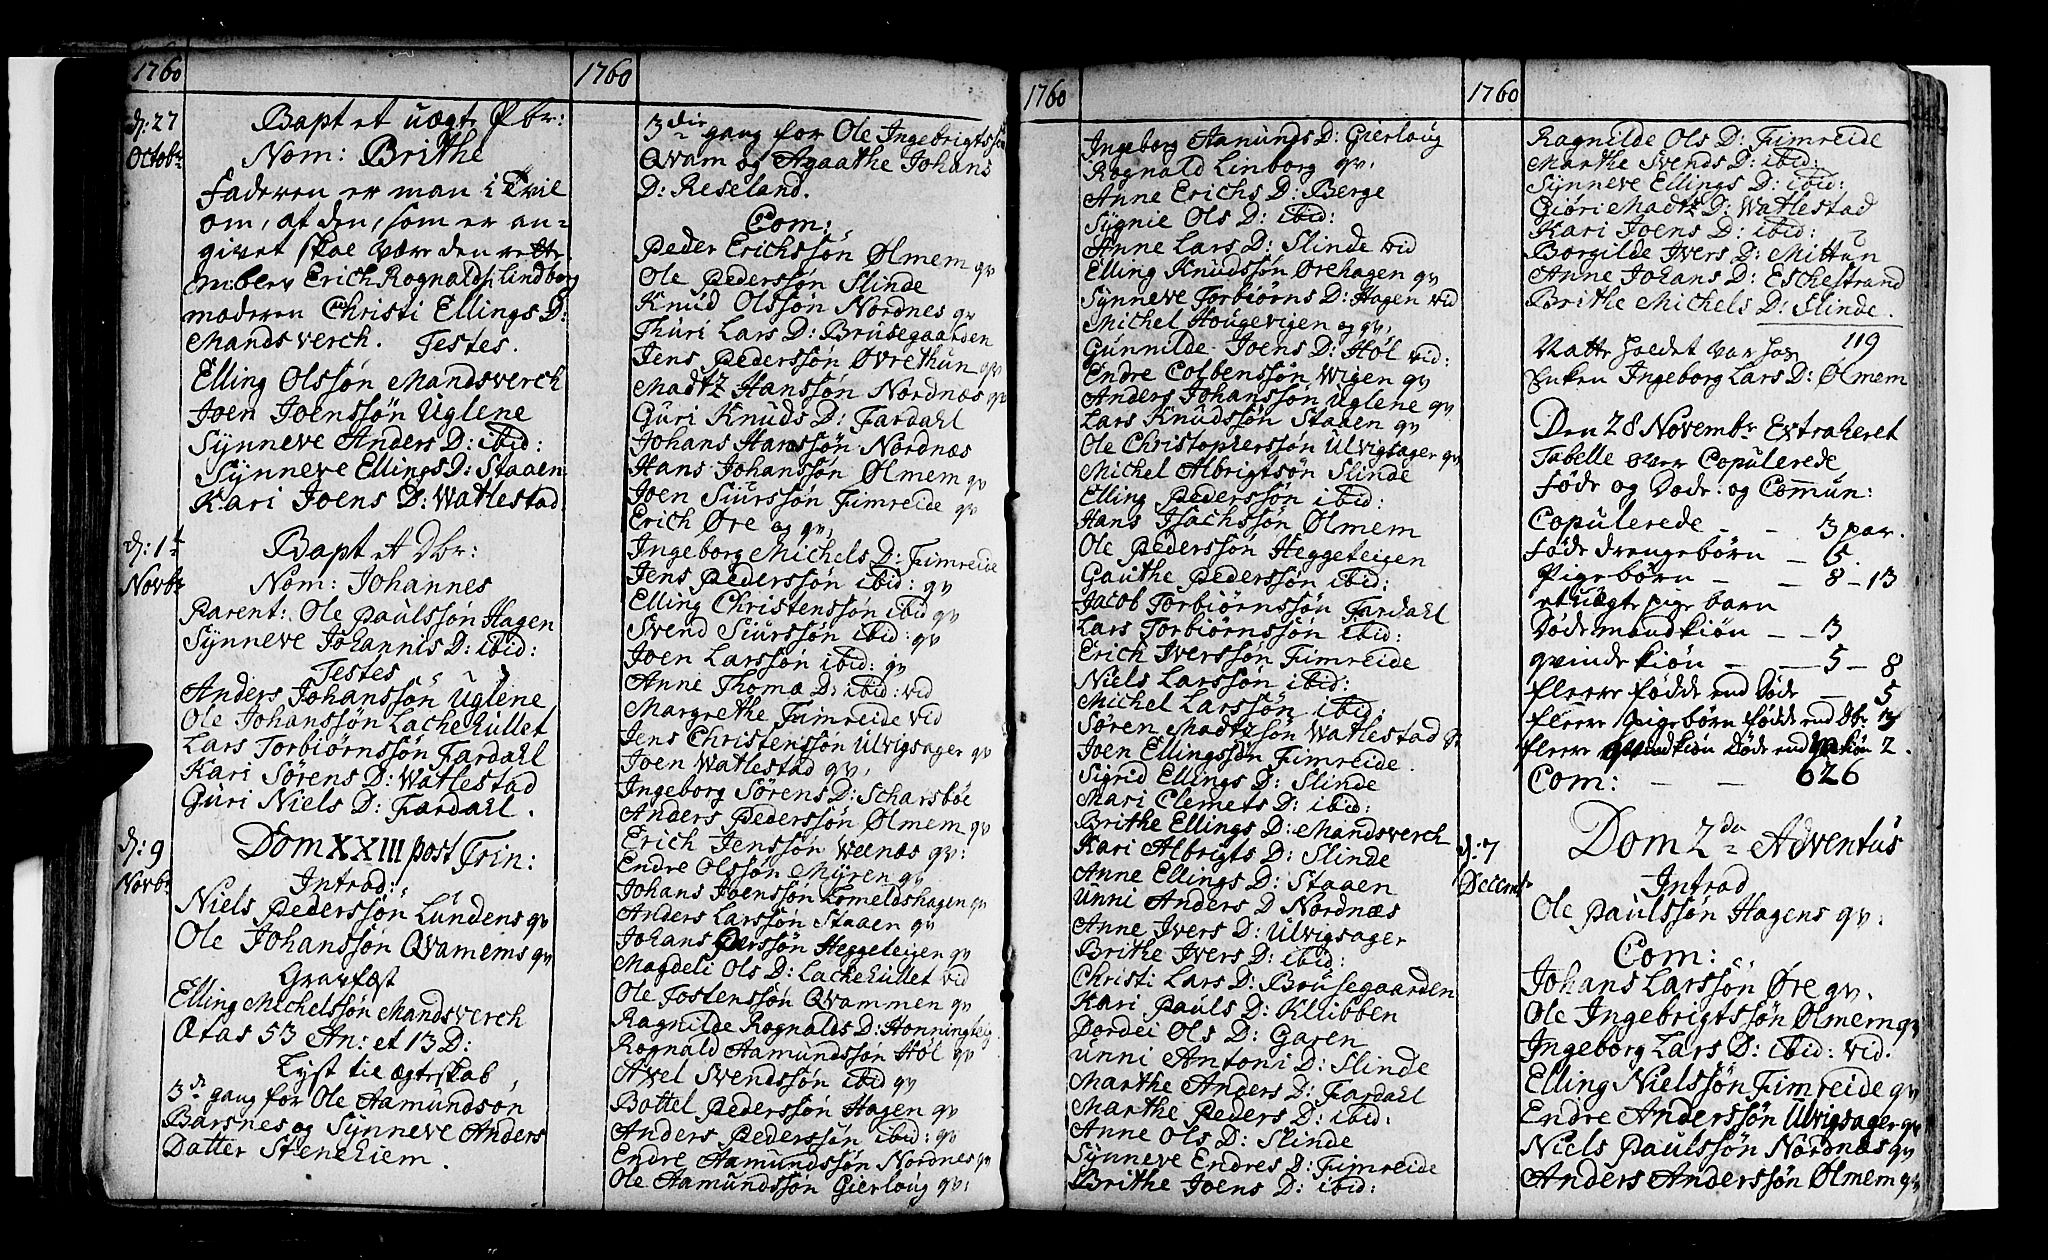 1760
d: 27
Octobr
Bapt et uægte Pbr:
Nom: Brithe
Faderen er man i Tvil
om, af den, som er an-
givet skae være den rette
Erich Rognalds: Lindborg
moderen Christi Ellings D:
Mandsverch. Testes.
Elling Olssøn Mandsverch
Joen Joenssøn Uglene
Synneve Anders D: ibid:
Synneve Ellings D: Staaen
Kari Joens D: Watlestad
d: 1t
Novbr
Bapt et Dbr:
Nom: Johannes
Parent: Ole Paulssøn Hagen
Synneve Johannis D: ibid:
Testes
Anders Johanssøn Uglene
Ole Johanssøn Lachehullet
Lars Torbiørnssøn Fardahl
Kari Sørens D: Watlestad
Guri Niels D: Fardahl.
d: 9
Novbr
Dom XXIII post Trin:
Introd:
Niels Pederssøn Lundens qv
Ole Johanssøn Qvamems qv
Gravfæst
Elling Michelssøn Mandsverch
Ætas 53 An: et 13 D:
Lyst til ægteskab
3de gang for Ole Aamundson
Barsnes og Synneve Anders
Datter Stenehiem.
1760
3die gang for Ole Ingebrigtssøn
Qvam og Agaathe Johans
D: Reseland.
Com:
Peder Erichssøn Ølmem qv
Ole Pederssøn Slinde
Knud Olssøn Nordnes qv
Thuri Lars D: Brusegaarden
Jens Pederssøn Øvrethun qv
Madtz Hanssøn Nordnæs qv
Guri Knuds D: Fardahl
Johans Hanssøn Nordnæs
Hans Johanssøn Ølmem qv
Joen Siurssøn Fimreide qv
Erich Øre og qv,
Ingeborg Michels D: Fimreide
Jens Pederssøn ibid: qv
Elling Christenssøn ibid qv
Svend Siurssøn ibid: qv
Joen Larssøn ibid: qv
Anne Thomæ D: ibid: vid
Margrethe Fimreide vid
Jens Christenssøn Ulvigsager qv
Joen Watlestad qv,
Ingeborg Sørens D: Scharsbøe
Anders Pederssøn Ølmem qv
Erich Jenssøn Weenæs qv:
Endre Olssøn Myren qv
Johans Joenssøn Esmeldshagen qv
Anders Larssøn Staaen qv
Johans Pærssøn Heggeteigen qv
Magdeli Ols D: Lachehullet vid
Ole Tostenssøn Qvammen qv
Ragnilde Rognalds D: Honningteig
Rognald Aamundssøn Høl qv
Axel Svendssøn ibid qv
Bottel Pederssøn Hagen qv
Anders Pederssøn ibid: qv
Endre Aamundssøn Nordnes qv
Ole Aamundssøn Gierloug qv:
1760
Ingeborg Aamunds D: Gierloug
Rognald Linborg qv,
Anne Erichs D: Berge
Sygnie Ols D: ibid:
Anne Lars D: Slinde vid
Elling Knudssøn Ørehagen qv
Synneve Torbiørns D: Hagen vid
Michel Hougevigen og qv,
Gunnilde Joens D: Høl vid:
Endre Colbenssøn Wigen qv
Anders Johanssøn Uglene qv
Lars Knudssøn Staaen qv
Ole Christopherssøn Ulvigsager qv
Michel Albrigtsøn Slinde
Elling Pederssøn ibid:
Hans Isachssøn Ølmem
Ole Pederssøn Heggeteigen
Gauthe Pederssøn ibid:
Jacob Torbiørnssøn Fardahl
Lars Torbiørnssøn ibid:
Erich Iverssøn Fimreide
Niels Larssøn ibid:
Michel Larssøn ibid:
Søren Madtzsøn Watlestad
Joen Ellingssøn Fimreide.
Sigrid Ellings D: Slinde
Mari Clemets D: ibid:
Brithe Ellings D: Mandsverch
Kari Albrigts D: Slinde
Anne Ellings D: Staaen
Unni Anders D Nordnæs
Anne Ivers D: Ulvigsager
Brithe Ivers D: ibid:
Christi Lars D: Brusegaarden
Kari Pauls D: Klibben
Dordei Ols D: Garen
Unni Antoni D: Slinde
Marthe Anders D: Fardahl
Marthe Peders D: ibid:
Anne Ols D: Slinde
Synneve Endres D: Fimreide
Brithe Joens D: ibid:
1760
Ragnilde Ols D: Fimreide
Marthe Svends D: ibid:
Synneve Ellings D: ibid:
Giøri Madtz D: Watlestad
Kari Joens D: ibid:
Borgilde Ivers D: Mittun
Anne Johans D: Eschestrand
Brithe Michels D: Slinde.
119
Natte holdet var hos
Enken Ingeborg Lars D: Ølmem
Den 28 Novembr Extraheret
Tabelle over Copulerede,
Føde og Døde: og Commun:
Copulerede - - 3 par.
Føde drengebørn - 5.
Pigebørn - - 8 - 13
et uægte pige barn
Døde mandkiøn - - 3
qvinde kiøn - - 5 - 8
fleere fødde end Døde - 5
fleere pigebørn fødde end Dbr 3
fleere qvindkiøn Døde end kiøn 2.
Com: - - 626
d: 7
Decemb
Dom 2da Adventus
Introd
Ole Paulssøn Hagens qv:
Com:
Johans Larssøn Øre qv.
Ole Ingebrigtssøn Ølmem qv
Ingeborg Lars D: ibid: vid.
Elling Nielssøn Fimreide qv
Endre Anderssøn Ulvigsager qv
Niels Paulssøn Nordnæs qv
Anders Anderssøn Ølmem qv